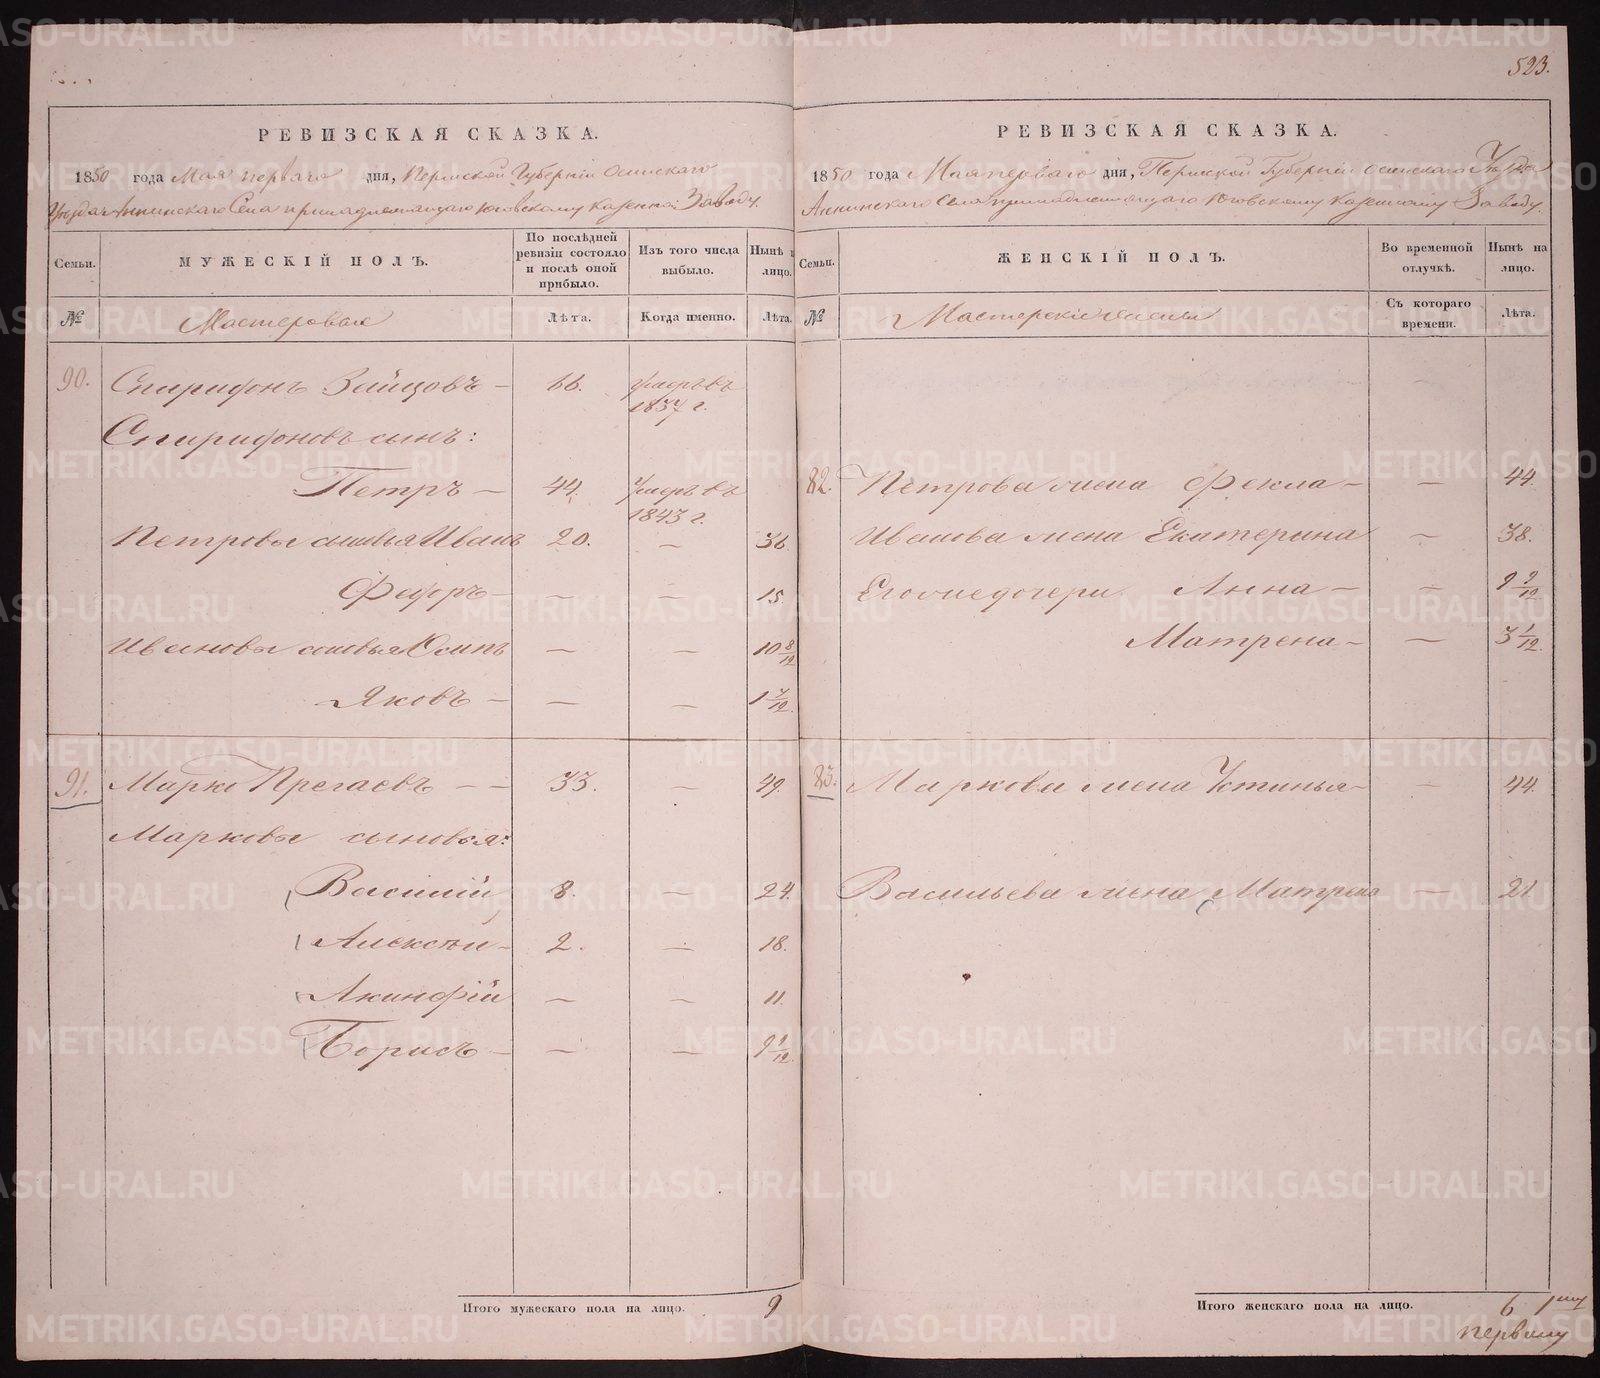 523.
РЕВИЗСКАЯ СКАЗКА.
1850 года Мая первого дня, Пермской Губерніи Осинскаго
Уезда Аннинскаго Села принадлежащаго Юговскому Казенному Заводу.
Семьи.
МУЖЕСКІЙ ПОЛЪ.
По послѣдней ревизіи состояло и послѣ оной прибыло.
Изъ того числа выбыло.
Нынѣ на лицо.
№
Мастеровые
Лѣта.
Когда именно.
Лѣта.
90. Спиридонъ Зайцовъ — 66. умеръ въ 1837 г.
Спиридоновъ сынъ:
Петръ — 44. умеръ въ 1843 г.
Петровы сыновья Иванъ 20. — 36.
Федоръ — — — 15.
Ивановы сыновья Осипъ — — 10 8/12
Яковъ — — — 1 7/12
91. Марко Прегаевъ — — 33. — 49.
Марковы сыновья:
Василій 8. — 24.
Алексѣй — 2. — 18.
Акинфій — — 11.
Борисъ — — — 9 1/12
Итого мужескаго пола на лицо. 9
РЕВИЗСКАЯ СКАЗКА.
1850 года Мая первого дня, Пермской Губерніи Осинскаго Уезда
Аннинскаго Села принадлежащаго Юговскому Казенному Заводу.
Семьи.
ЖЕНСКІЙ ПОЛЪ.
Во временной отлучкѣ.
Нынѣ на лицо.
№
Мастерскіе жены
Съ котораго времени.
Лѣта.
82. Петрова жена Фекла — — 44.
Иванова жена Екатерина — 38.
Его дочери Анна — — 9 9/12
Матрена — — 3 1/12
83. Маркова жена Устинья — — 44.
Васильева жена Матрена — 21.
Итого женскаго пола на лицо. 6
METRIKI.GASO-URAL.RU